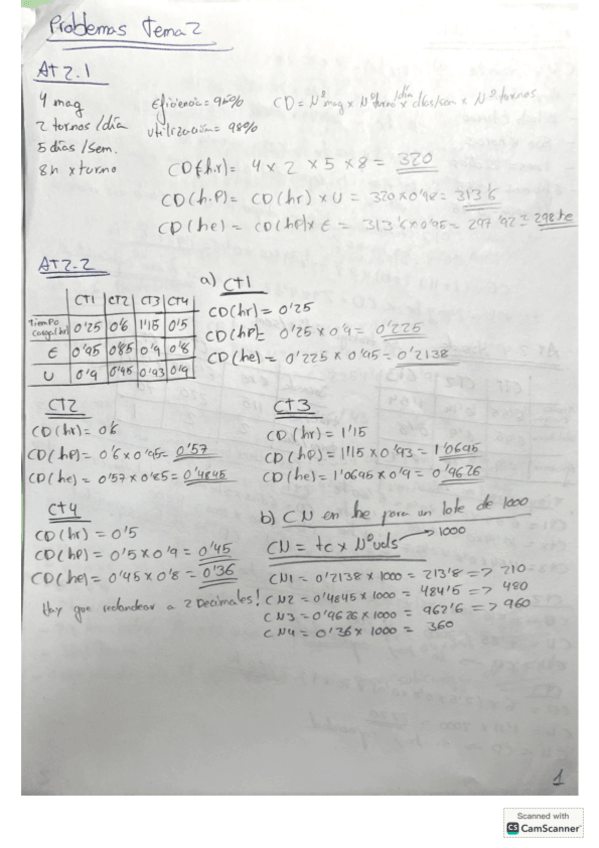 Problemas Tema 2
AT 2.1
4 maq
2 tornos/día
5 días/sem.
8h x turno
Eficiencia = 95%
Utilización = 98%
CD = Nº maq x Nº turno/día x días/sem x Nº tornos
CD(hr) = 4 x 2 x 5 x 8 = 320
CD(h.P) = CD(hr) x U = 320 x 0'98 = 313'6
CD(he) = CD(hP) x E = 313'6 x 0'95 = 297'92 = 298 he
AT2.2
CT1 CT2 CT3 CT4
Tiempo carga(hr) 0'25 0'6 1'15 0'5
E 0'95 0'85 0'9 0'8
U 0'9 0'95 0'93 0'9
a) CT1
CD(hr) = 0'25
CD(hP) = 0'25 x 0'9 = 0'225
CD(he) = 0'225 x 0'95 = 0'2138
CT2
CD(hr) = 0'6
CD(hP) = 0'6 x 0'95 = 0'57
CD(he) = 0'57 x 0'85 = 0'4845
CT3
CD(hr) = 1'15
CD(hP) = 1'15 x 0'93 = 1'0695
CD(he) = 1'0695 x 0'9 = 0'9626
CT4
CD(hr) = 0'5
CD(hP) = 0'5 x 0'9 = 0'45
CD(he) = 0'45 x 0'8 = 0'36
Hay que redondear a 2 Decimales!
b) CN en he para un lote de 1000
CN = tc x Nºuds → 1000
CN1 = 0'2138 x 1000 = 213'8 => 210
CN2 = 0'4845 x 1000 = 484'5 => 480
CN3 = 0'9626 x 1000 = 962'6 => 960
CN4 = 0'36 x 1000 = 360
1
Scanned with
CS CamScanner